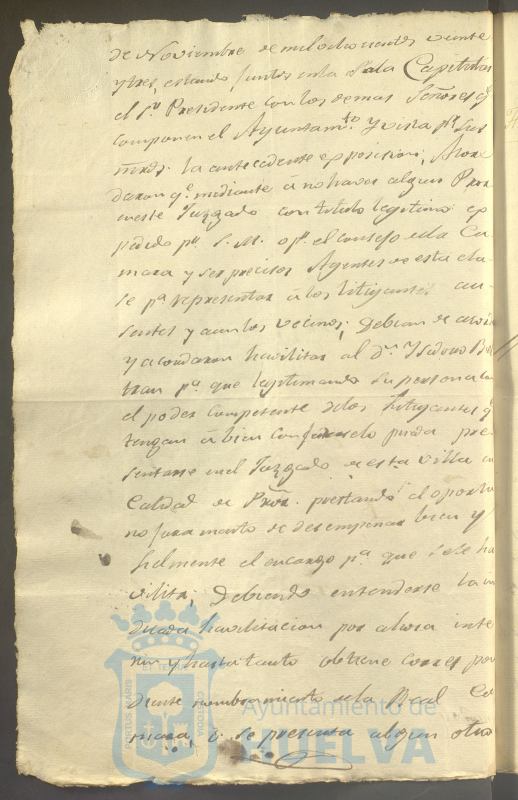 de Noviembre de mil ochocientos veinte
y tres, estando juntos en la Sala Capitular
el Sr. Presidente con los demas Señores qe.
componen el Ayuntamto. y vista pr. sus
mrds. la antecedente exposicion; Acor
daron qe. mediante á no haver algun Pror.
en este Juzgado con titulo legitimo ex
pedido pr. S. M. o pr. el consejo de la Ca
mara y ser precisos Agentes de esta cla
se pa. representar á los litigantes au
sentes y aun los vecinos; Debian de
y acordaron havilitar al dn. Ysidoro Bel
tran pa. que legitimando su persona con
el poder competente de los litigantes qe.
tengan á bien conferirselo pueda pre
sentarse en el Juzgado de esta villa en
calidad de Pror. prestando el oportu
no juramento de desempeñar bien y
fielmente el encargo pa. que se le ha
vilita; Debiendo entenderse la in
dicada havilitacion por ahora inte
rin y hasta tanto obtiene correspon
diente nombramiento de la Real Ca
mara, o se presenta algun otro
Ayuntamiento de
HUELVA
PORTUS MARIS
ET TERRAE
CUSTODIA